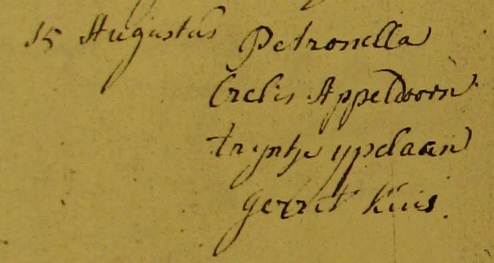 15 Augustus Petronella
Crelis Appeldoorn
trijntje ypelaan
gerrit Kuis.